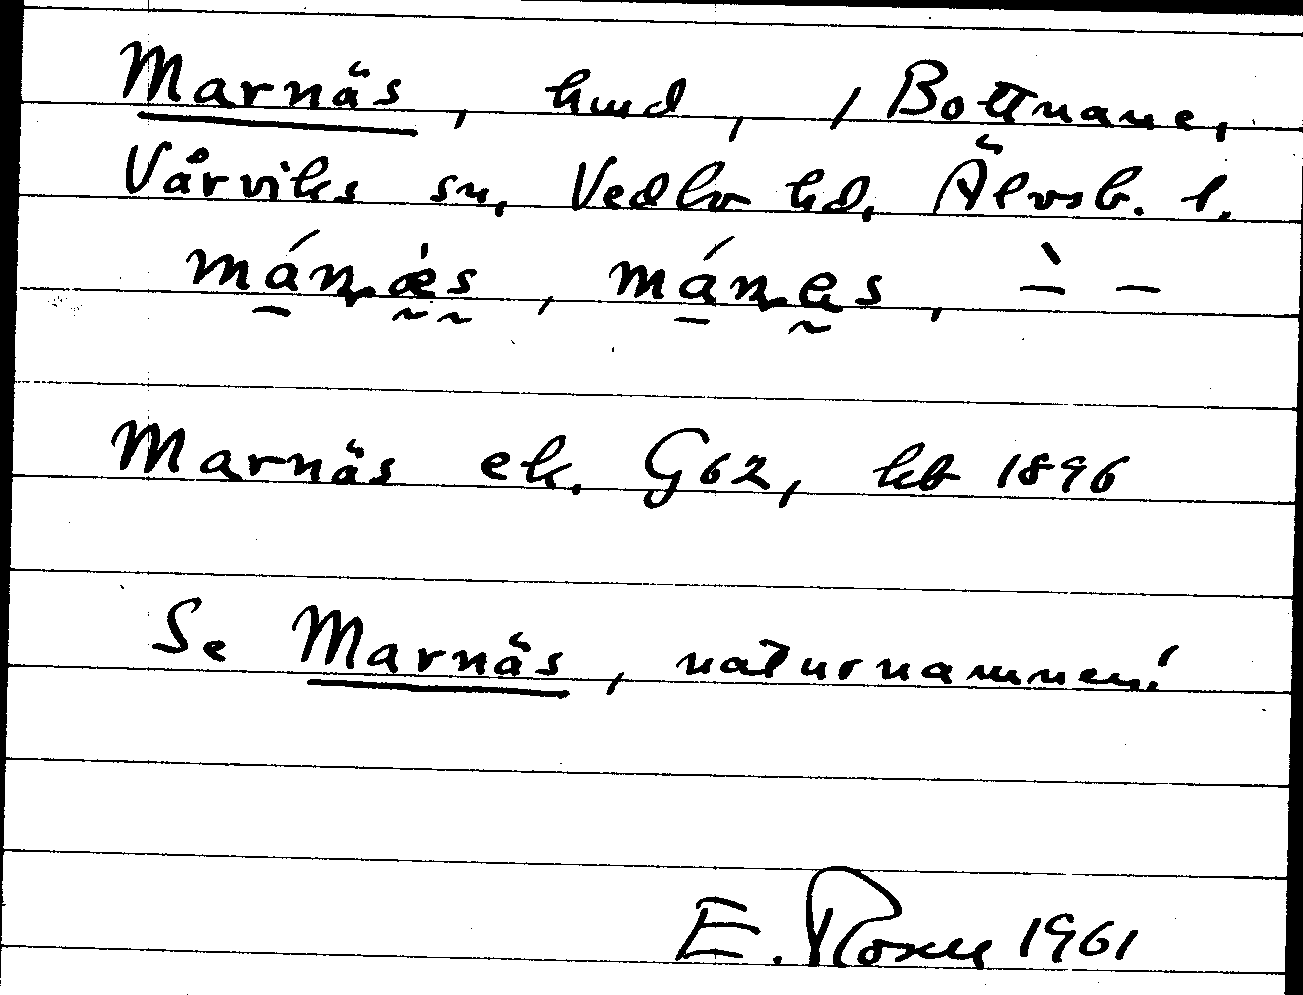 Marnäs, hmd, / Bottnane,
Vårviks sn, Vedbo hd, Älvsb. l.
mánæs, mánes, ` – –
Marnäs ek. G62, kb 1896
Se Marnäs, naturnamnen!
E. Rosell 1961